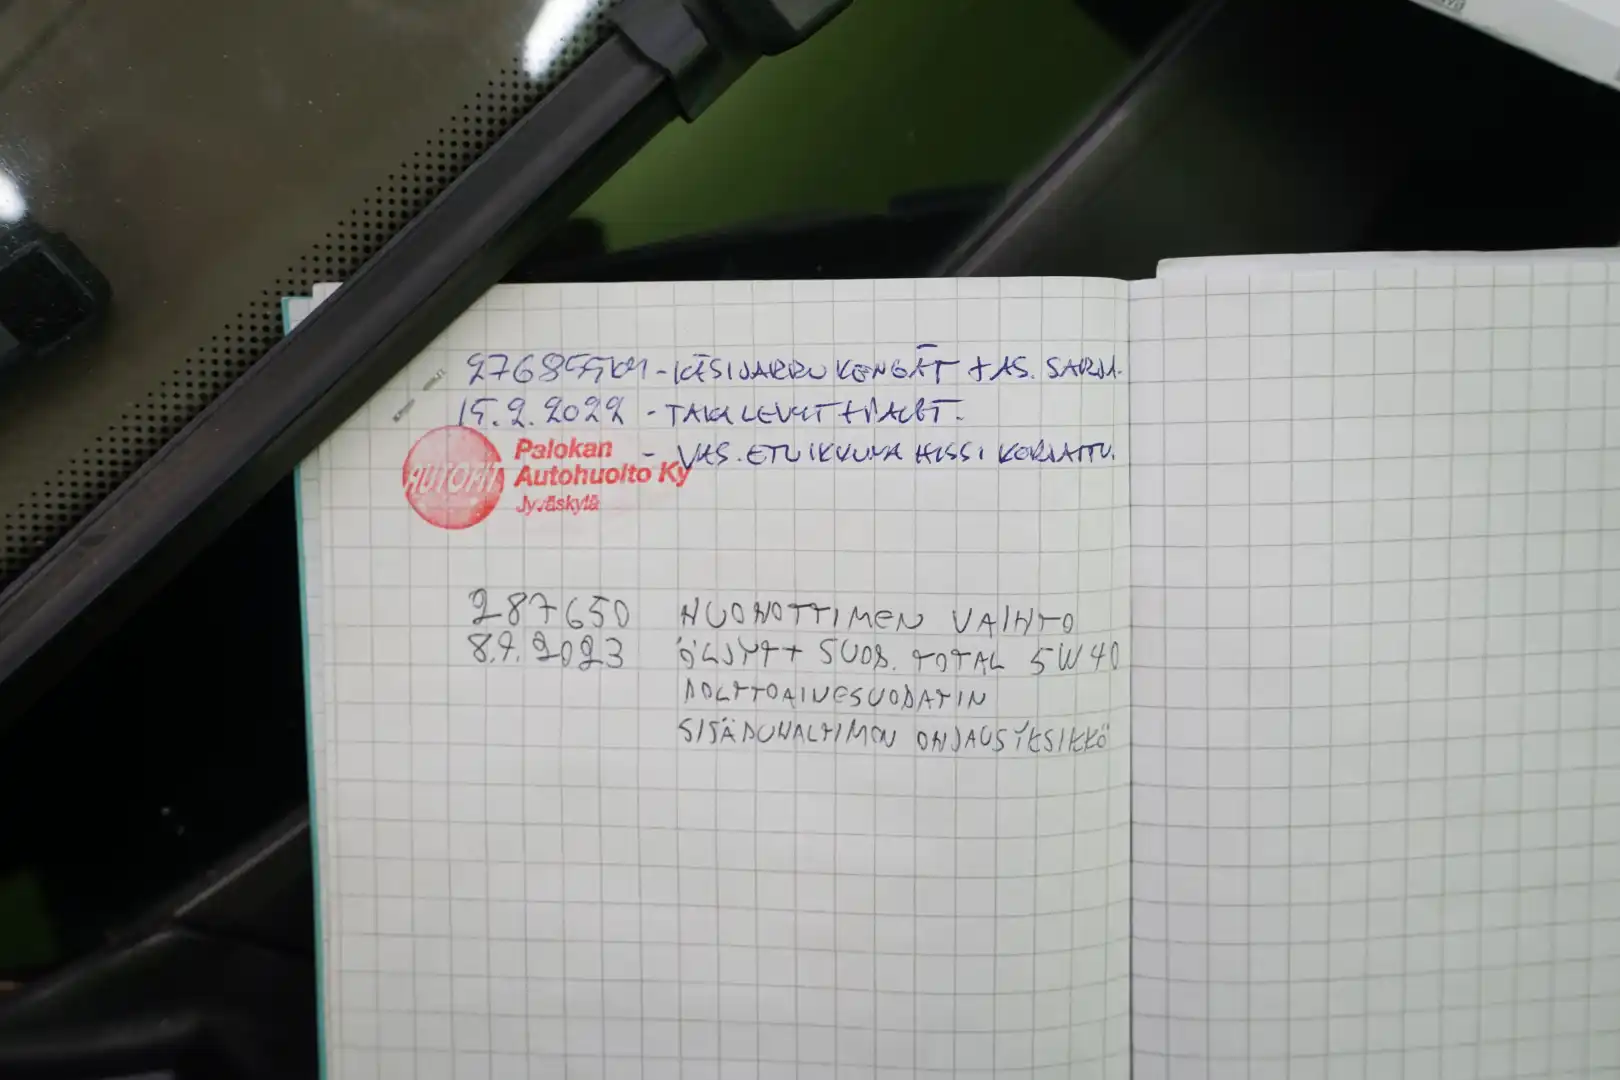 276855KM - KÄSIJARRU KENGÄT + AS. SARJA.
15.2.2022 - TAKA LEVYT + PALAT.
- VAS. ETU IKKUNA HISSI KORJATTU.
AUTOFIT
Palokan
Autohuolto Ky
Jyväskylä
287650 NUOHOTTIMEN VAIHTO
8.7.2023 ÖLJYT + SUOD. TOTAL 5W40
POLTTOAINESUODATIN
SISÄPUHALTIMEN OHJAUSYKSIKKÖ